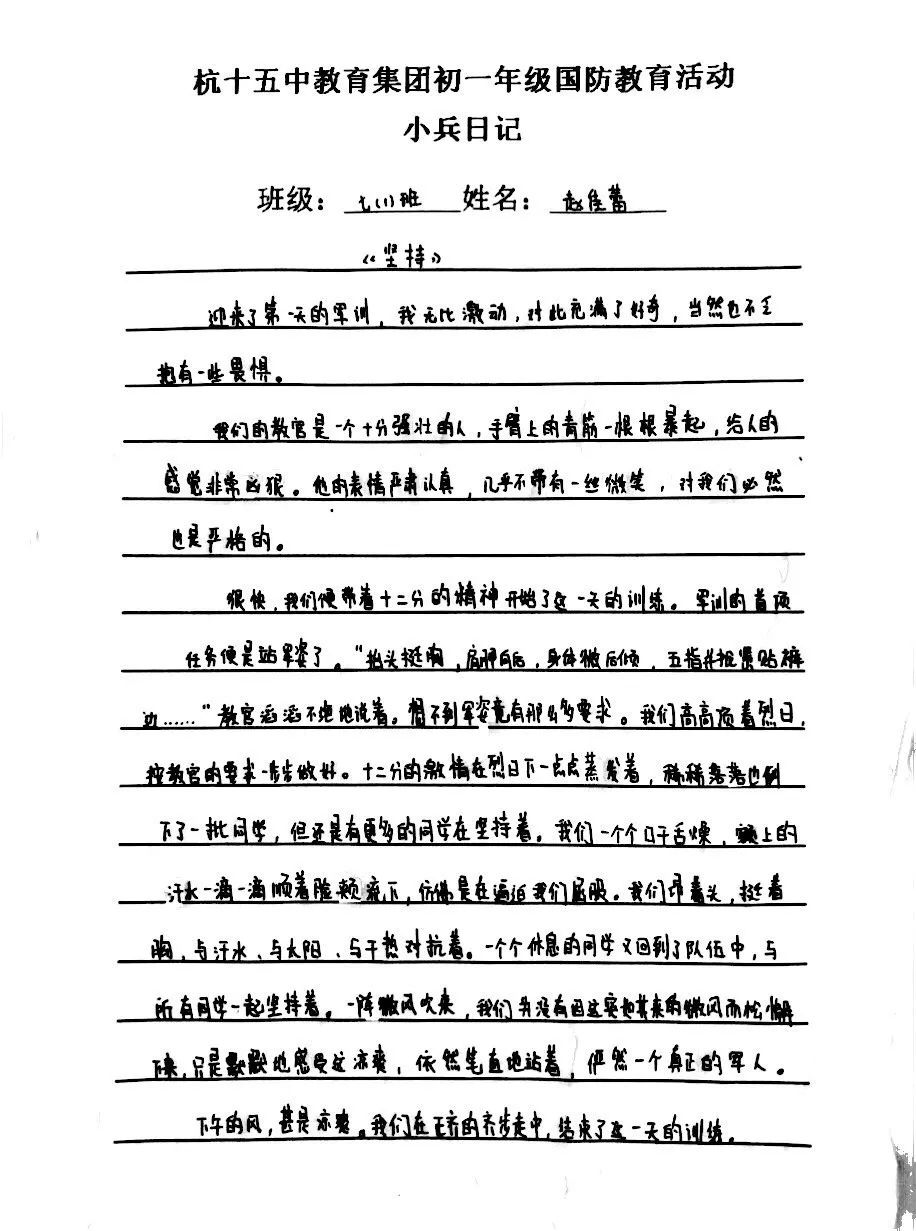 杭十五中教育集团初一年级国防教育活动
小兵日记
班级：七(1)班 姓名：赵佳蕾
《坚持》
迎来了第一天的军训，我无比激动，对此充满了好奇，当然也不乏
抱有一些畏惧。
我们的教官是一个十分强壮的人，手臂上的青筋一根根暴起，给人的
感觉非常凶狠。他的表情严肃认真，几乎不带有一丝微笑，对我们必然
也是严格的。
很快，我们便带着十二分的精神开始了这一天的训练。军训的首项
任务便是站军姿了。“抬头挺胸，肩胛向后，身体微后倾，五指并拢紧贴裤
边……”教官滔滔不绝地说着。想不到军姿竟有那么多要求。我们高高顶着烈日，
按教官的要求一步步做好。十二分的激情在烈日下一点点蒸发着，稀稀落落也倒
下了一批同学，但还是有更多的同学在坚持着。我们一个个口干舌燥，额上的
汗水一滴一滴顺着脸颊流下，仿佛是在逼迫我们屈服。我们昂着头，挺着
胸，与汗水、与太阳、与干热对抗着。一个个休息的同学又回到了队伍中，与
所有同学一起坚持着。一阵微风吹来，我们并没有因这突如其来的微风而松懈
下来，只是默默地感受这凉爽，依然笔直地站着，俨然一个真正的军人。
下午的风，甚是凉爽。我们在正齐的齐步走中，结束了这一天的训练。